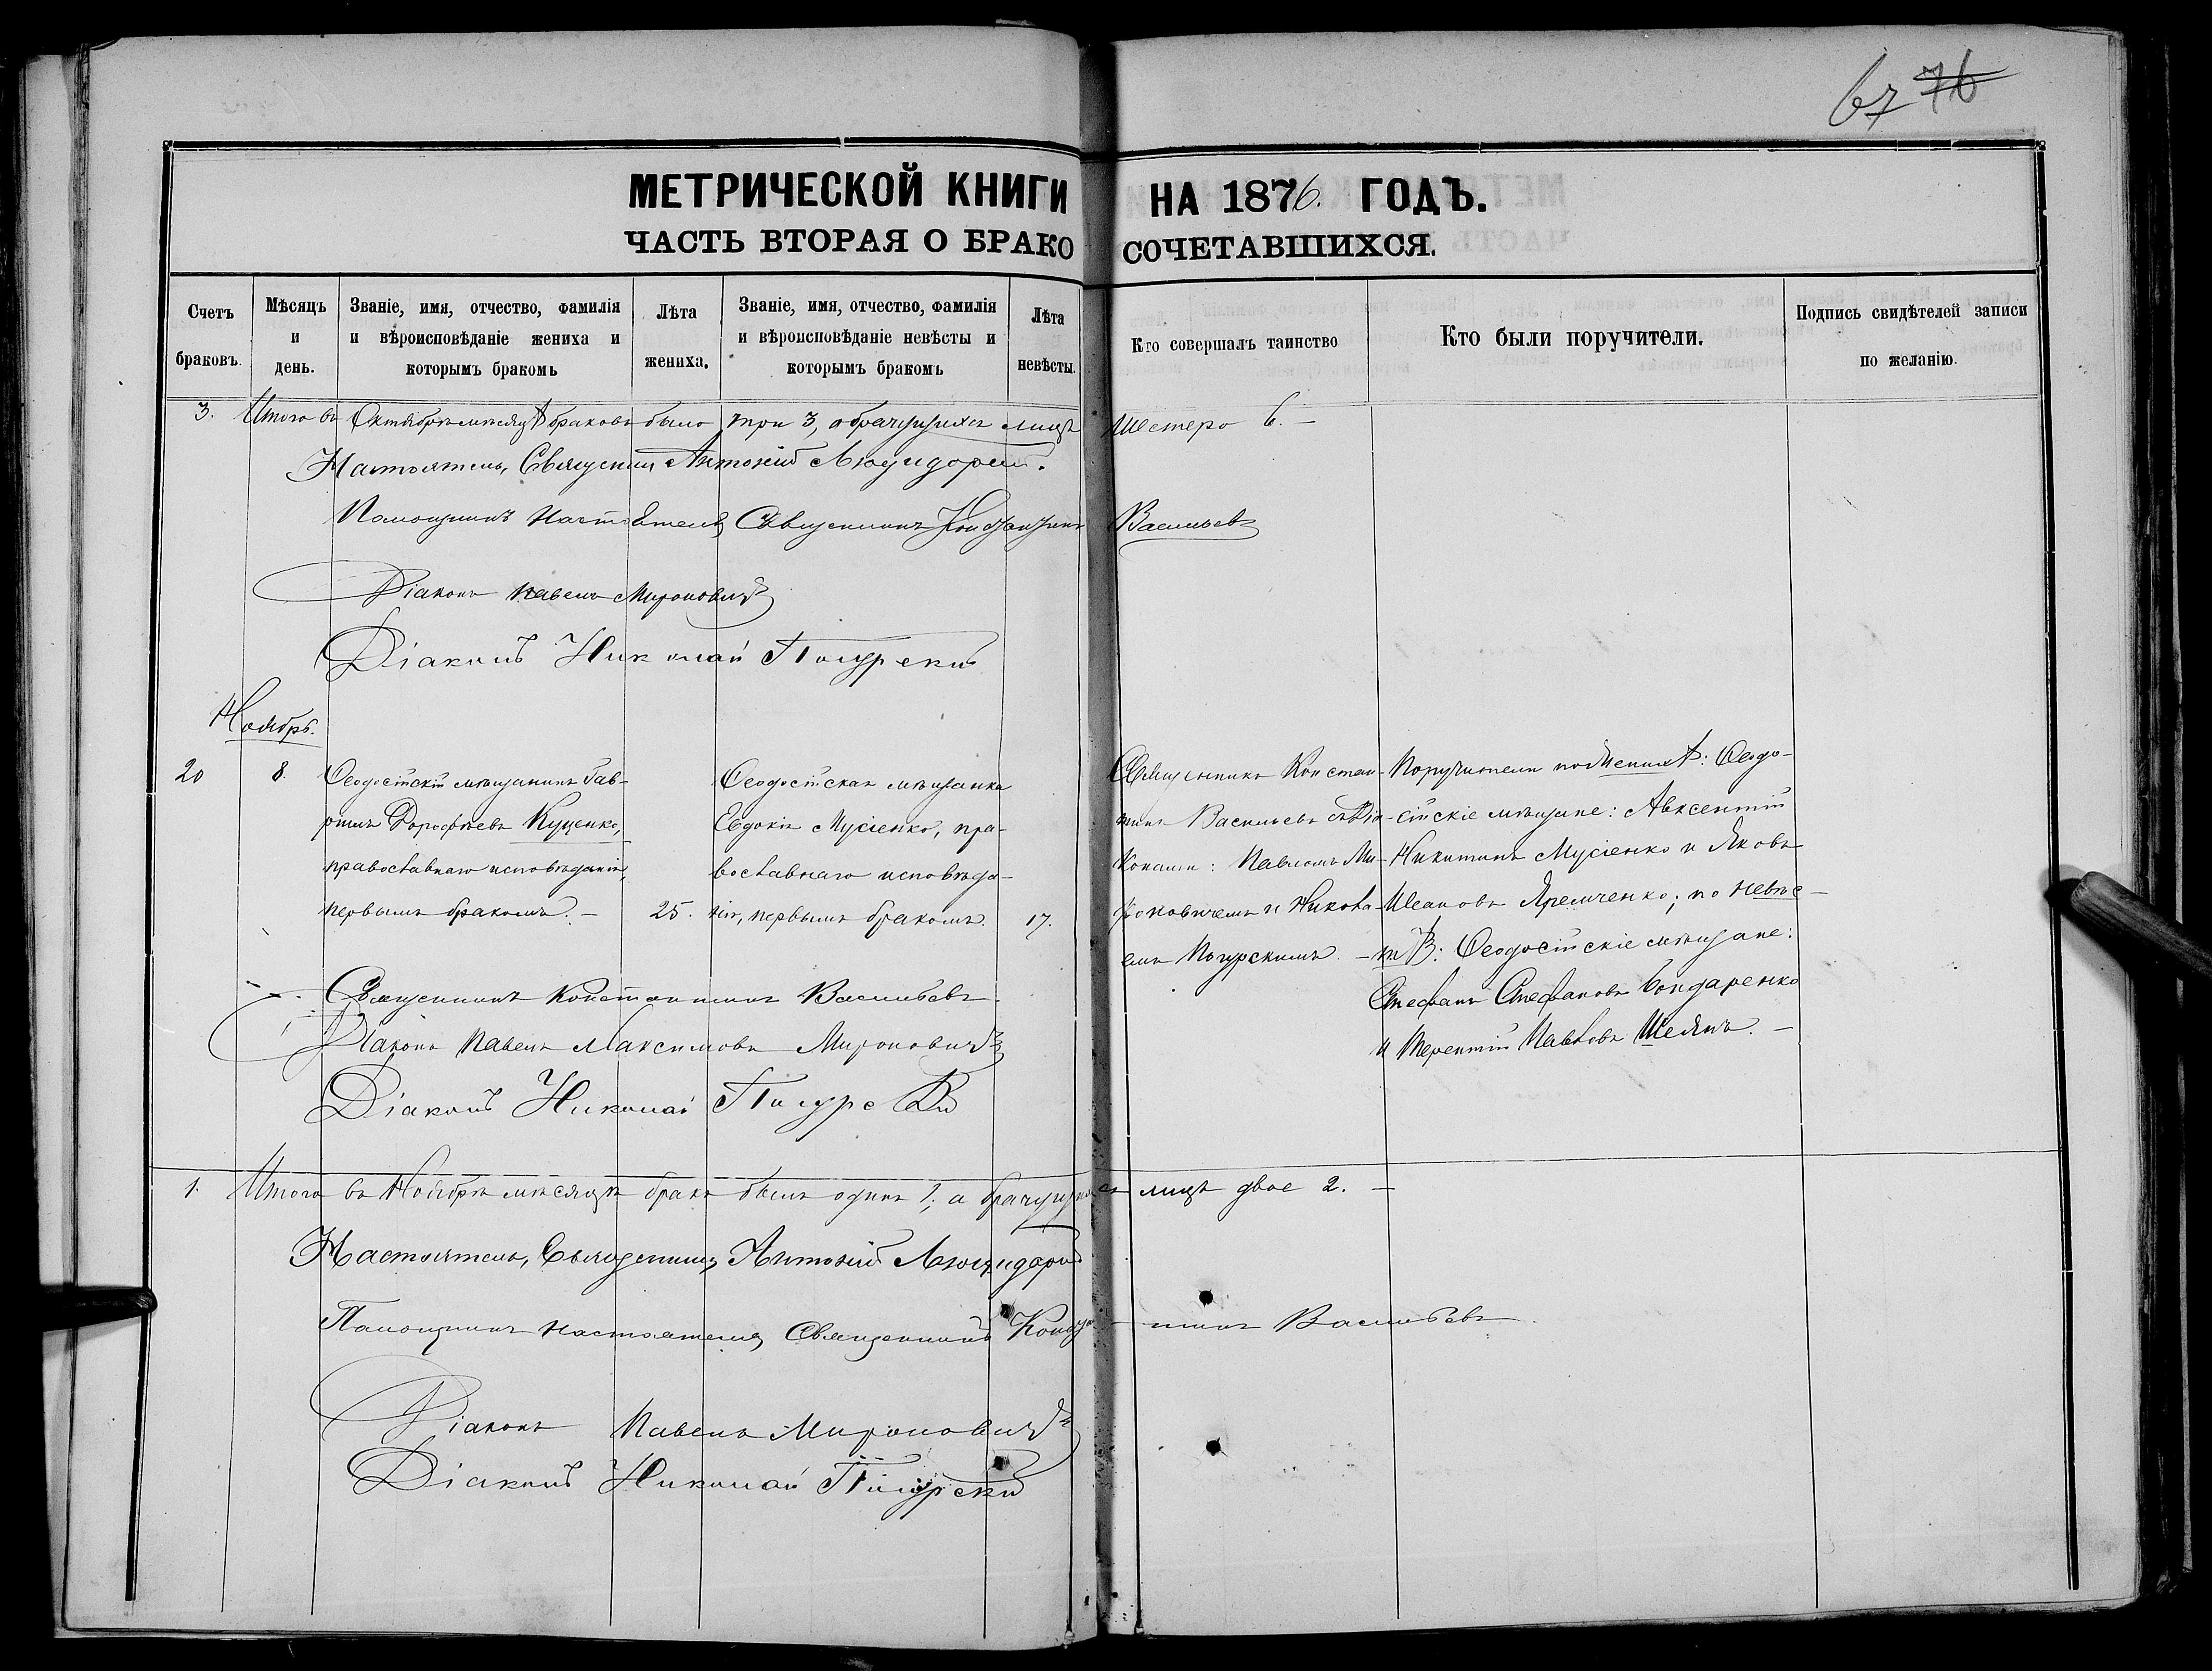 67 76
МЕТРИЧЕСКОЙ КНИГИ НА 1876. ГОДЪ.
ЧАСТЬ ВТОРАЯ О БРАКОСОЧЕТАВШИХСЯ.
Счетъ браковъ.
Мѣсяцъ и день.
Званіе, имя, отчество, фамилія и вѣроисповѣданіе жениха и которымъ бракомъ
Лѣта жениха.
Званіе, имя, отчество, фамилія и вѣроисповѣданіе невѣсты и которымъ бракомъ
Лѣта невѣсты.
Кто совершалъ таинство
Кто были поручители.
Подпись свидѣтелей записи по желанію.
3. Итого въ Октябрѣ мѣсяцѣ браковъ было три 3, а брачущихся лицъ шестеро 6. –
Настоятель, Священникъ Антоній
Помощникъ Настоятеля, Священникъ Константинъ Васильевъ
Діаконъ Павелъ Мироновичъ
Діаконъ Николай Погурскій
Ноябрь.
20
8.
Ѳеодосійскій мѣщанинъ Гав-
ріилъ Дорофѣевъ Куценко,
православнаго исповѣданія,
первымъ бракомъ. –
25.
Ѳеодосійская мѣщанка
Евдокія Мусіенко, пра-
вославнаго исповѣда-
нія, первымъ бракомъ.
17.
Священникъ Констан-
тинъ Васильевъ съ Діа-
конами: Павломъ Ми-
роновичемъ и Никола-
емъ Погурскимъ. –
Поручители по женихѣ: Ѳеодо-
сійскіе мѣщане: Авксентій
Никитинъ Мусіенко и Яковъ
Ивановъ Яремченко; по невѣс-
тѣ: Ѳеодосійскіе мѣщане:
Стефанъ Стефановъ Бондаренко
и Терентій Павловъ
Священникъ Константинъ Васильевъ
Діаконъ Павелъ Максимовъ Мироновичъ
Діаконъ Николай Погурскій
1. Итого въ Ноябрѣ мѣсяцѣ бракъ былъ одинъ 1; а брачущихся лицъ двое 2. –
Настоятель, Священникъ Антоній
Помощникъ настоятеля, Священникъ Константинъ Васильевъ
Діаконъ Павелъ Мироновичъ
Діаконъ Николай Погурскій